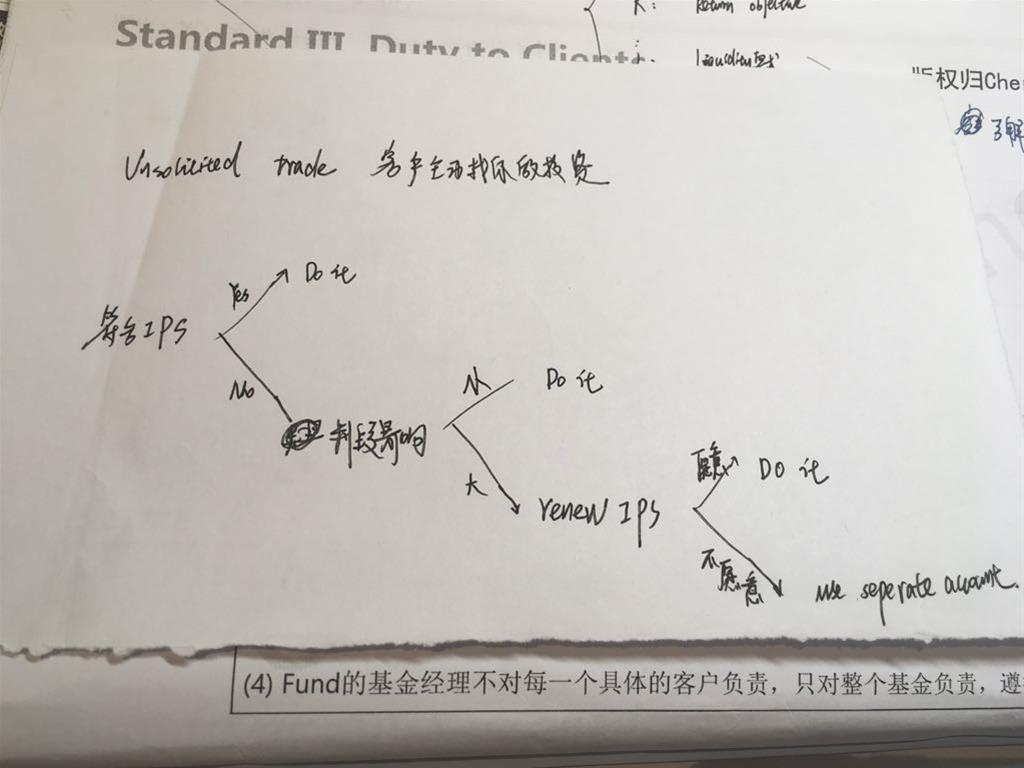 Return objective
Standard III Duty to Clients
版权归Che
了解
Unsolicited trade 客户主动找你的投资
Yes
Do it
符合IPS
No
小
Do it
判段影响
大
愿意
DO it
renew IPS
不愿意
use seperate account.
(4) Fund的基金经理不对每一个具体的客户负责，只对整个基金负责，遵